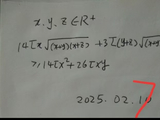 x.y.z∈R+
14πx√(x+y)(x+z) +3π(y+z)√(x+y)(x+z)
≥14πx²+26πxy
2025.02.10